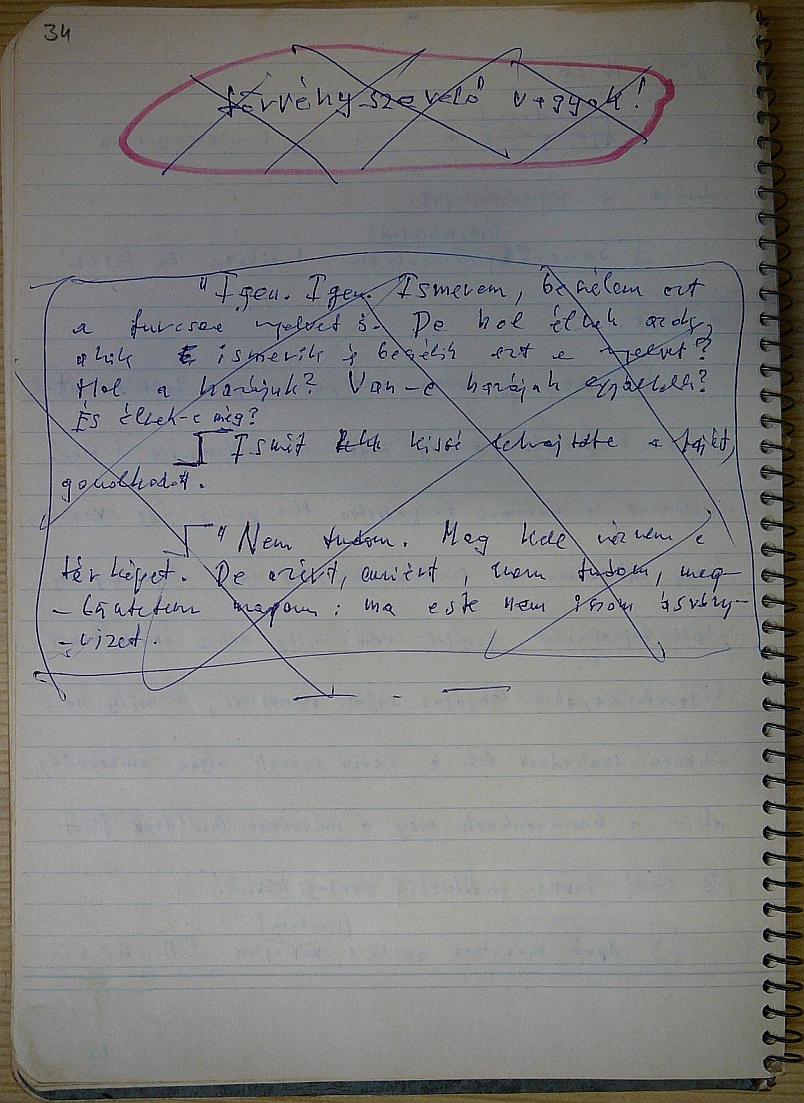 34
törvényszerető vagyok!
"Igen. Igen. Ismerem, beszélem ezt
a furcsa nyelvet is. De hol élnek azok,
akik ismerik s beszélik ezt a nyelvet?
Hol a hazájuk? Van-e hazájuk egyáltalán?
És élnek-e még?
Ismét kissé lehajtotta a fejét,
gondolkodott.
"Nem tudom. Meg kell néznem a
térképet. De azért, amiért, nem tudom, meg-
-büntetem magam: ma este nem iszom ásvány-
-vizet.